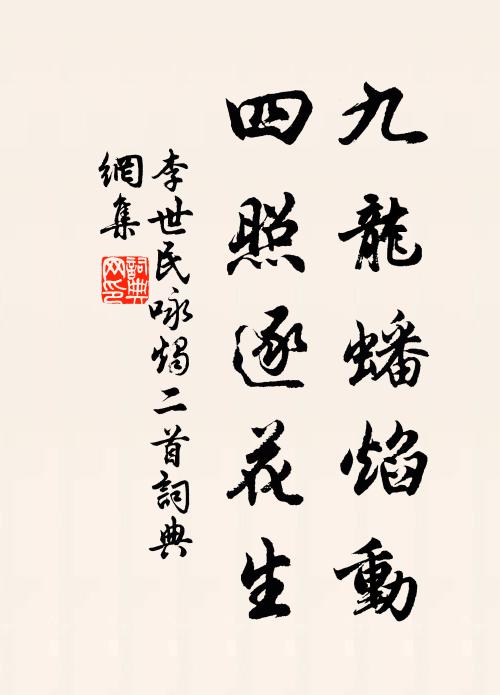 九龍蟠焰動
四照逐花生
李世民咏燭二首詞典
網集
詞典
网印